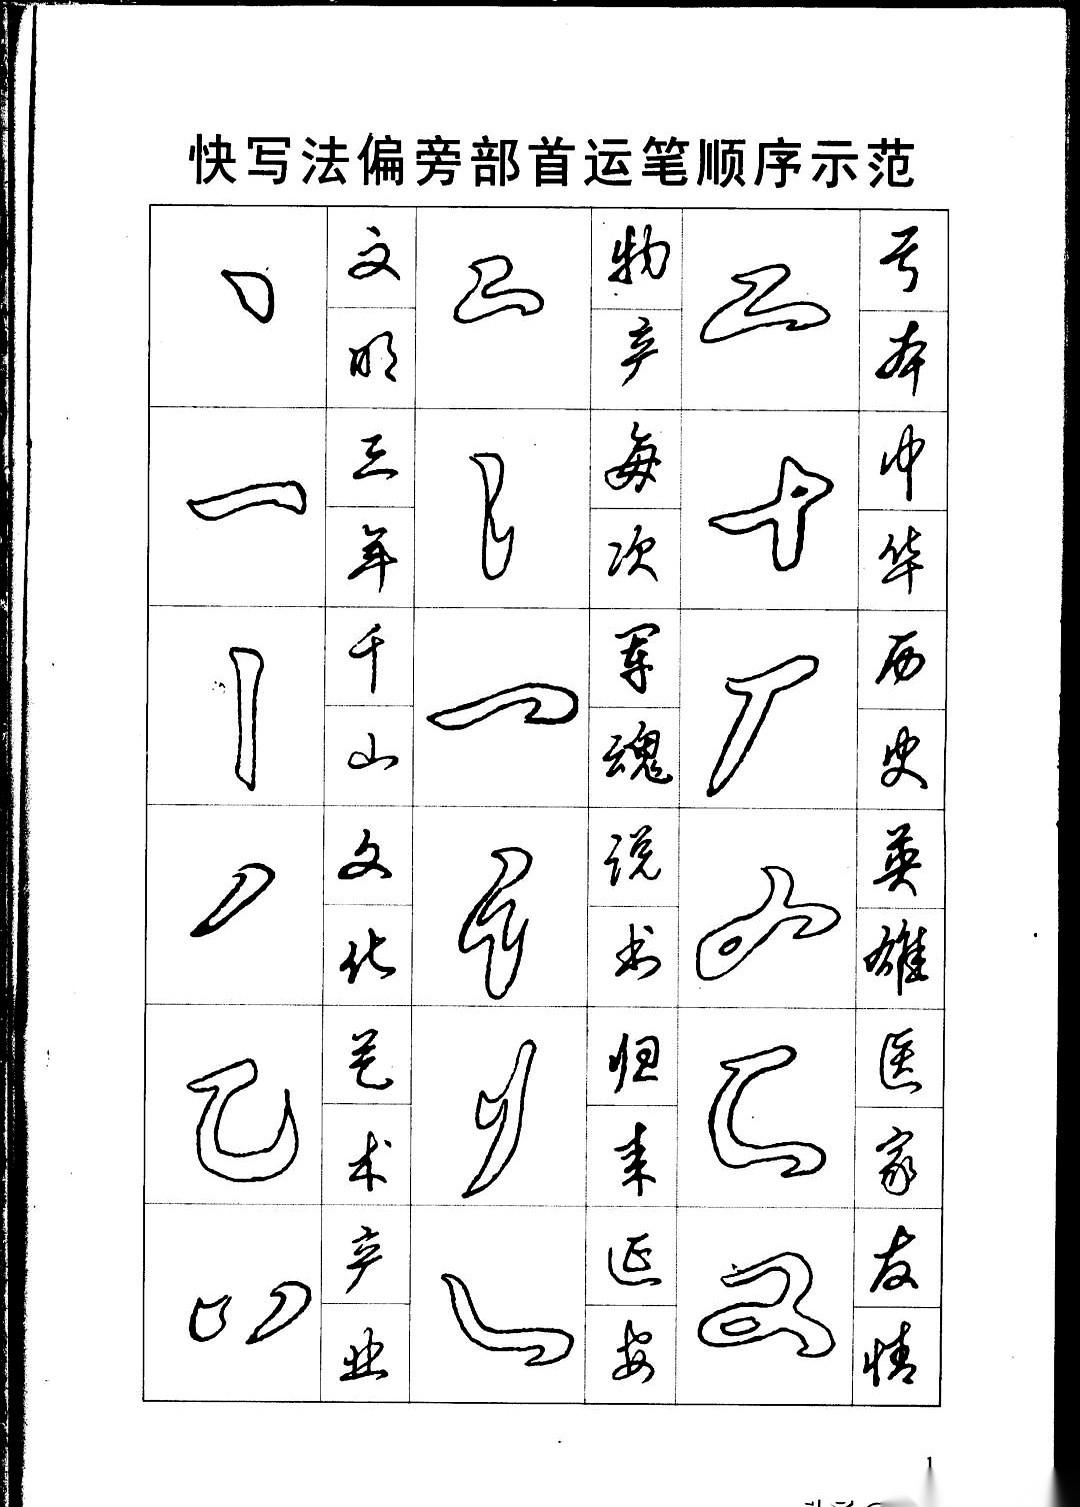 快写法偏旁部首运笔顺序示范
文 物
明 产 本
三 每 中
年 次 华
千 军 历
山 魂 史
文 说 英
化 书 雄
艺 归 医
术 来 家
产 延 友
业 安 情
1